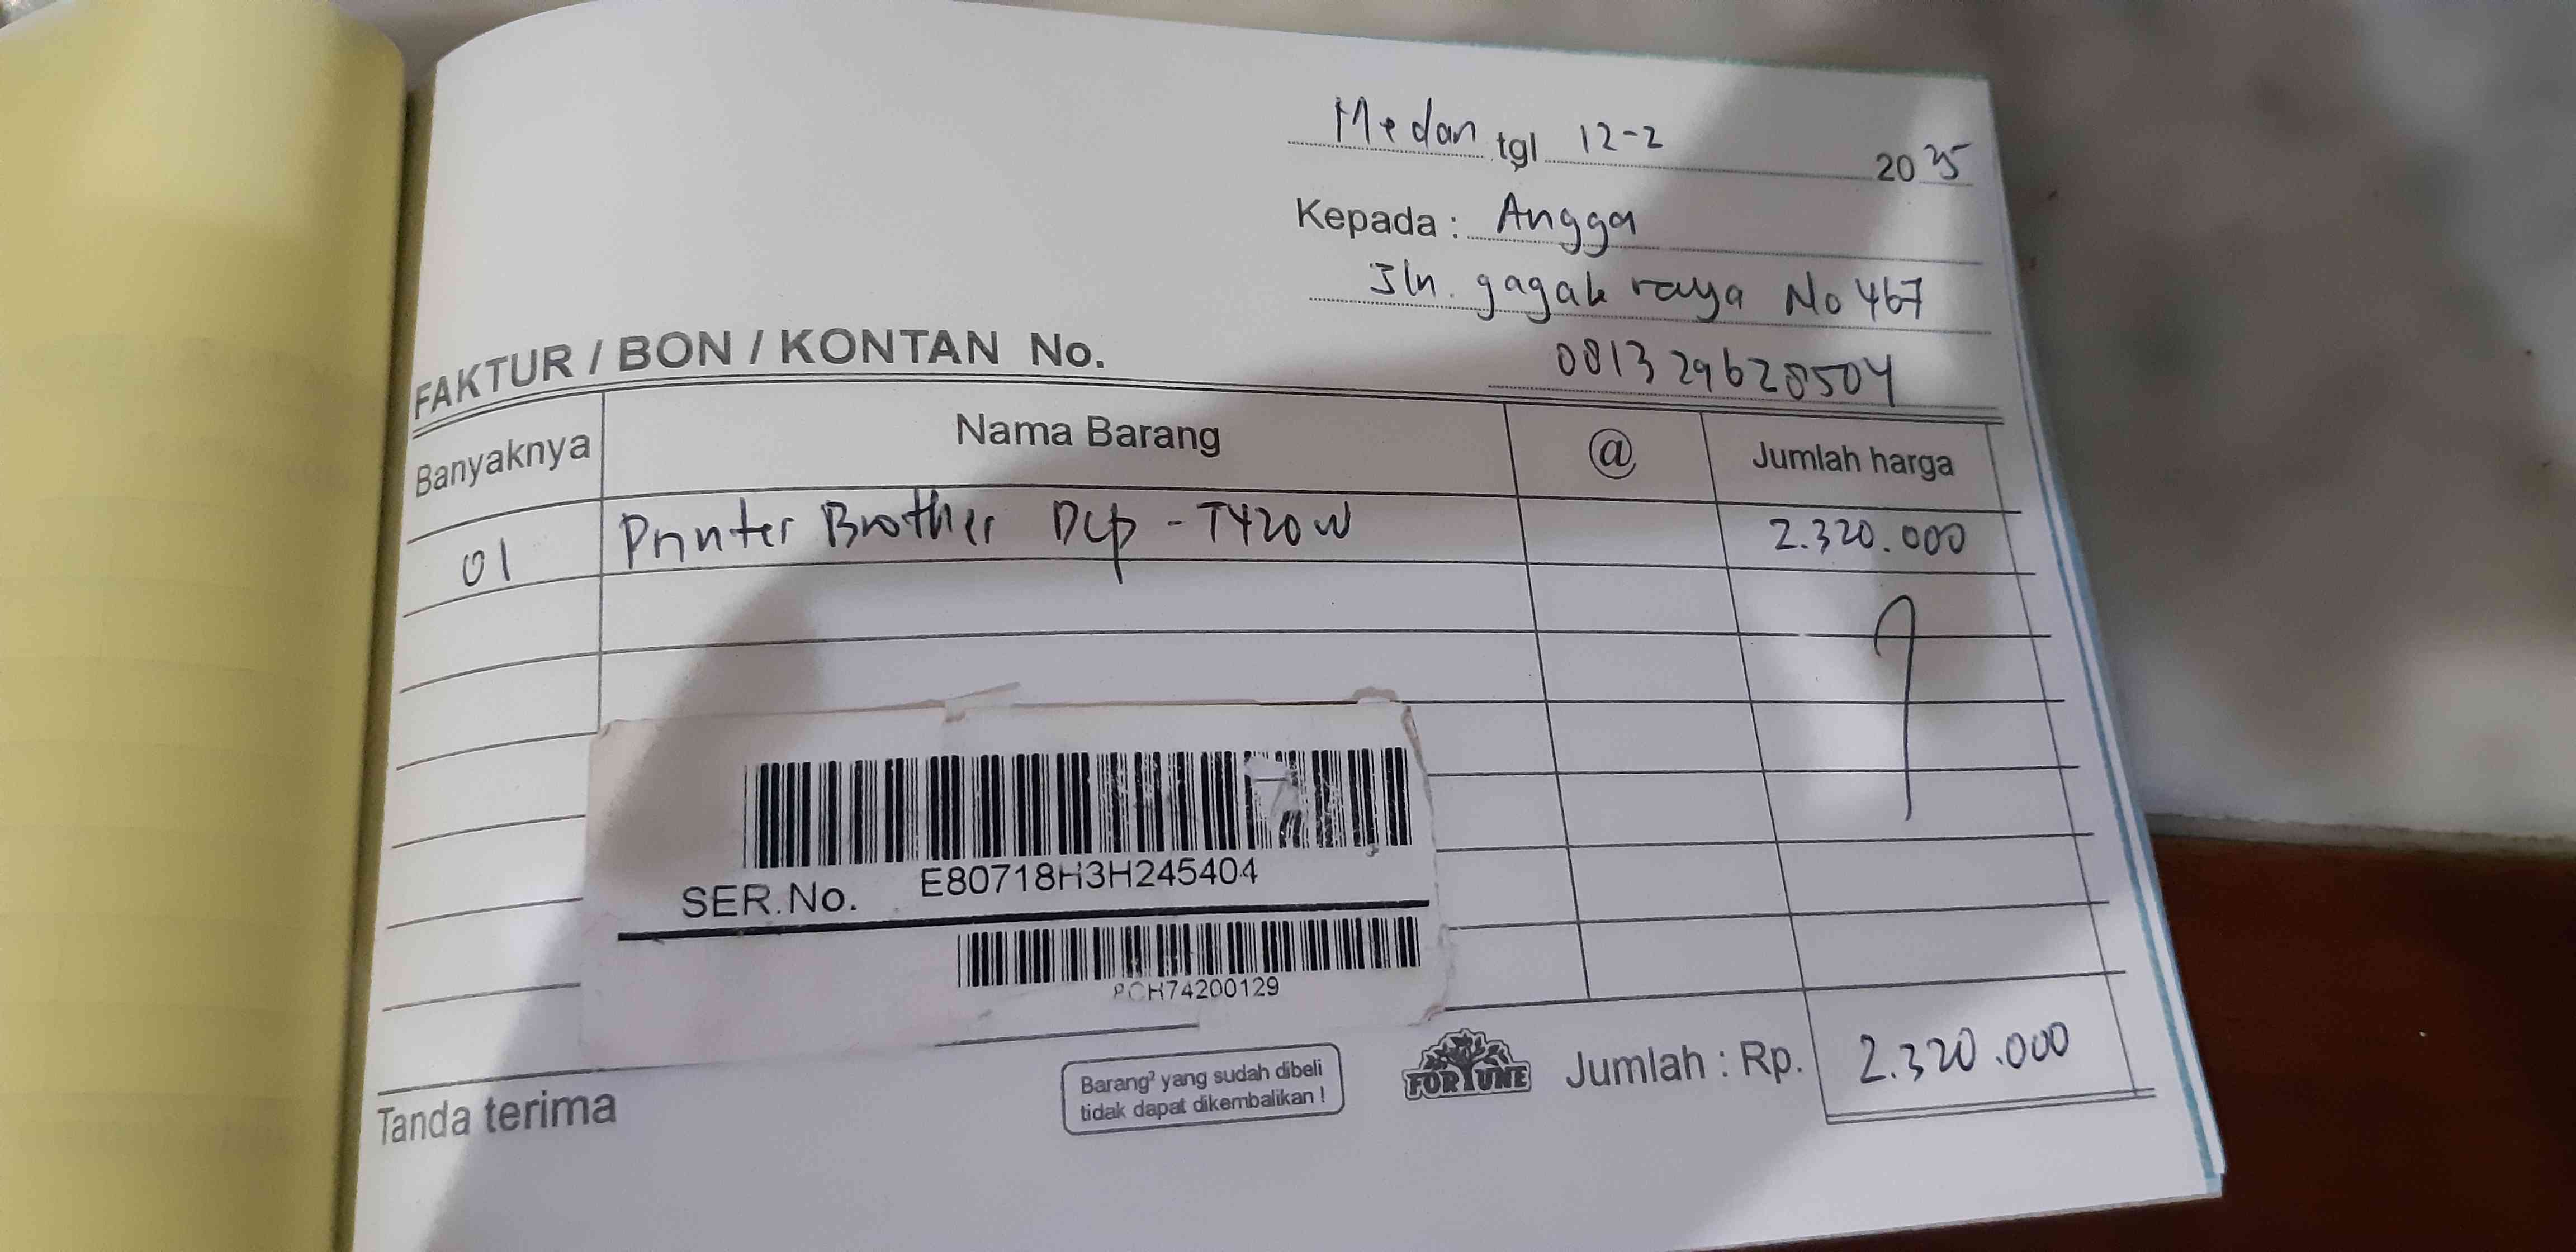 Medan tgl 12-2 2025
Kepada : Angga
Jln. gagak raya No 467
081329628504
FAKTUR / BON / KONTAN No.
Banyaknya Nama Barang @ Jumlah harga
01 Printer Brother Dcp - T420W 2.320.000
SER.No. E80718H3H245404
PCH74200129
Tanda terima
Barang² yang sudah dibeli
tidak dapat dikembalikan !
FORTUNE
Jumlah : Rp. 2.320.000